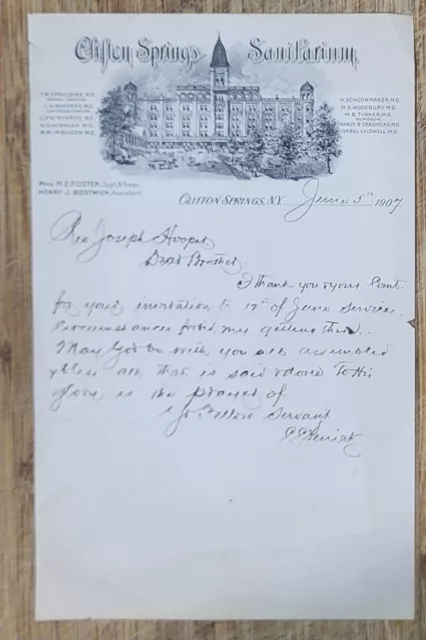 Clifton Springs Sanitarium
J.A. SANDERS, M.D.
H. SCHOONMAKER, M.D.
H.S. WOODBURY, M.D.
M.B. TINKER, M.D.
SURGEON
NANCY B. CRAIGHEAD, M.D.
ISABEL CALDWELL, M.D.
MRS. M.E. FOSTER, Supt. & Treas.
HENRY J. BOSTWICK, Assist. Supt.
CLIFTON SPRINGS, N.Y. June 5" 1907
Rev Joseph Hooper
Dear Brother
I thank you & your
for your invitation to 17 of June services.
circumstances forbid my getting there.
May God be with you all assembled
& bless all that is said & done to His
glory, is the prayer of
Yr Fellow Servant